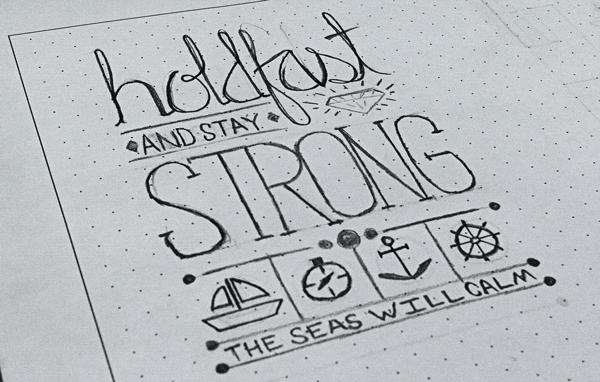 holdfast
AND STAY
STRONG
THE SEAS WILL CALM